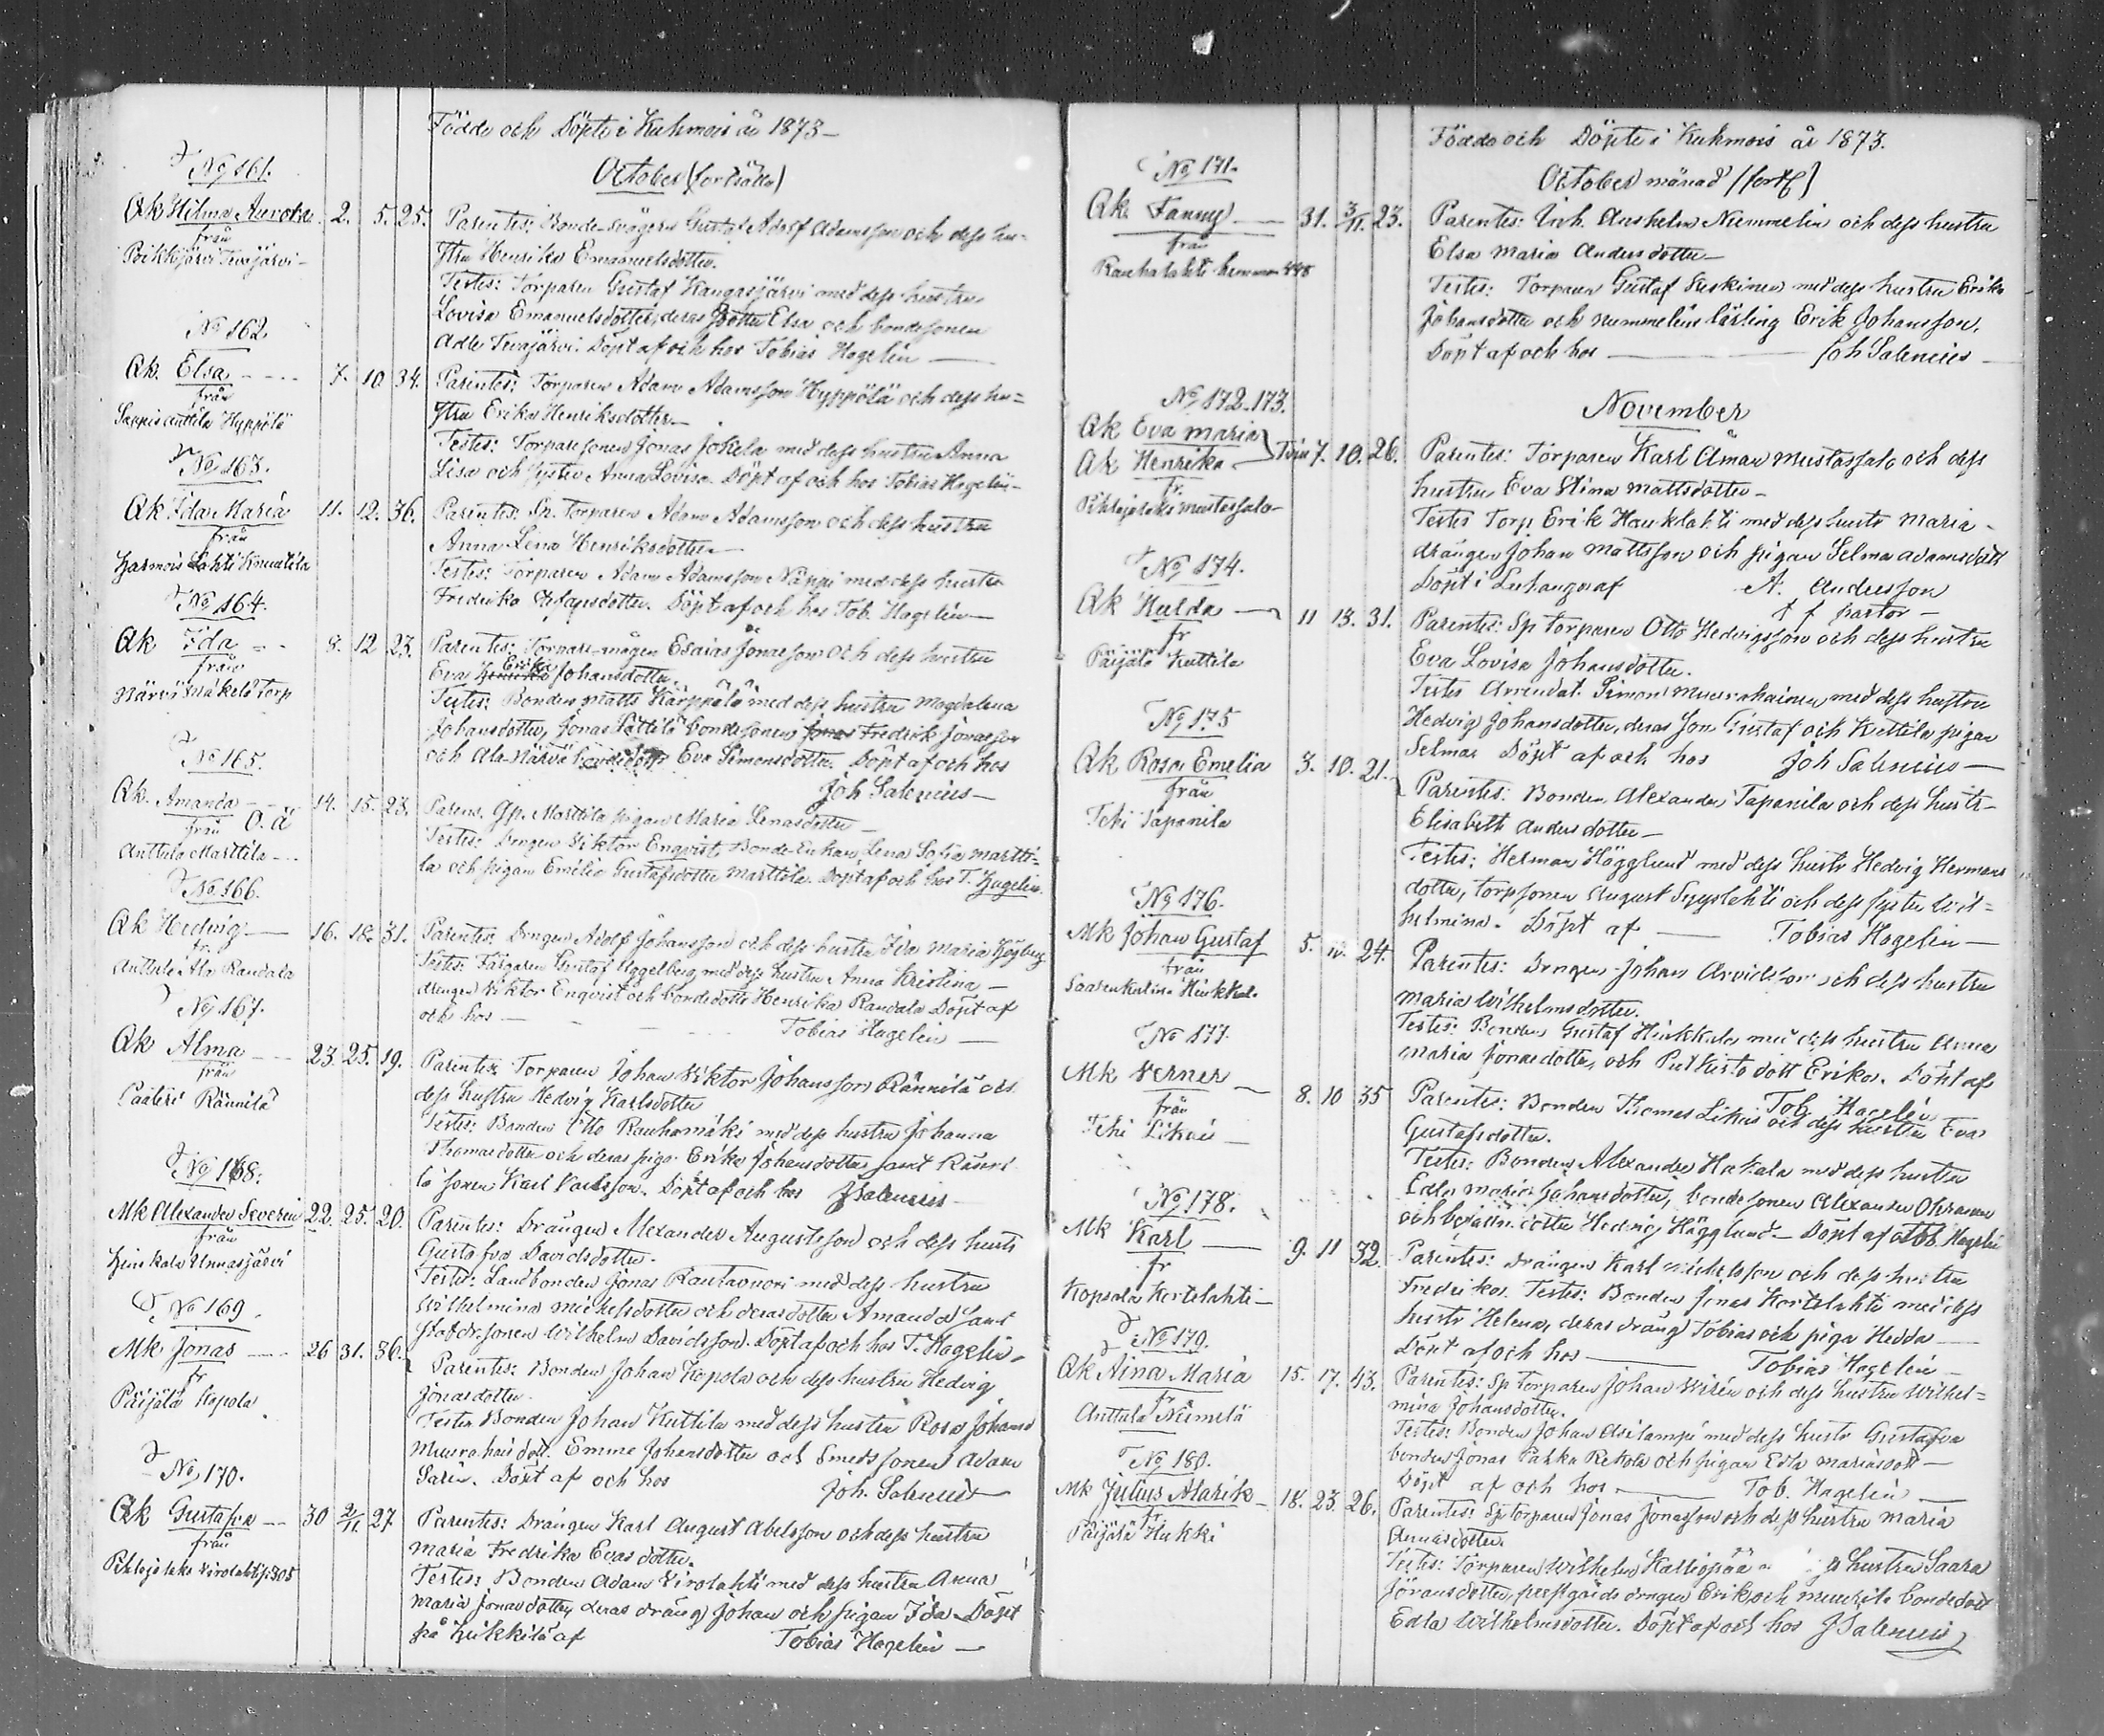 Födde och Döpte i Kuhmois år 1873 –
October (fortsättn)
No 161.
Qk Hilma Aurora 2. 5. 25. Parentes: Bonde-svågern Gustaf Adolf Adamsson och dess hu-
från
stru Henrika Emanuelsdotter.
Testes: Torparen Gustaf Kangasjärvi med dess hustru
Lovisa Emanuelsdotter, deras dotter Elsa och bondesonen
Döpt af och hos Tobias Hagelin –
No 162.
Qk. Elsa – 7. 10 34. Parentes: Torparen Adam Adamsson Hyppölä och dess hu=
från
stru Erika Henriksdotter –
Hyppölä
Testes: Torparesonen Jonas Jokela med dess hustru Anna
Lisa och syster Anna Lovisa. Döpt af och hos Tobias Hagelin –
No 163.
Qk Ida Maria 11. 12. 36. Parentes: Sp. Torparen Adam Adamsson och dess hustru
från
Anna Lena Henriksdotter –
Harmois Lahti Knuutila
Testes: Torparen Adam Adamsson Näppi med dess hustru
Fredrika dotter. Döpt af och hos Tob. Hagelin –
No 164.
Qk Ida 8. 12 23. Parentes: Torpare-mågen Esaias Jonasson och dess hustru
från
Eva Erika Johansdotter.
Närvä Mäkelä torp
Testes: Bonden Matts Kärppälä med dess hustru Magdalena
Johansdotter, Jonas bondesonen Fredrik Jonasson
och Ala-Närvä Eva Simonsdotter. Döpt af och hos
Joh Salenius –
No 165.
Qk. Amanda 14. 15. 23. Parens. Gp. Marttila pigan Maria Lenasdotter –
från O. ä
Anttula Marttila –
Testes: Drengen Viktor Enqvist, Bonde-Enkan Lena Sofia Martti=
la och pigan Emilia Gustafsdotter Marttila. Döpt af och hos T. Hagelin
No 166.
Qk Hedvig – 16. 18. 31. Parentes: Drengen Adolf Johansson och dess hustru Ida Maria
fr.
Anttula Ala Randala
Testes: Färgaren Gustaf Uggelberg med dess hustru Anna Kristina –
drengen Viktor Enqvist och bondedottr Henrika Randala Döpt af
och hos – Tobias Hagelin –
No 167.
Qk Alma – 23. 25. 19. Parentes: Torparen Johan Viktor Johansson Rännilä och
från
dess hustru Hedvig Karlsdotter
Rännilä
Testes: Bonden Otto Rauhamäki med dess hustru Johanna
Thomasdotter och deras piga Erika Johansdotter samt Ränni
lä sonen Karl Karlsson. Döpt af och hos JSalenius –
No 168:
Mk Alexander Severin 22. 25. 20. Parentes: Drängen Alexander Augustsson och dess hustr
från
Gustafva Davidsdotter.
Unnasjärvi
Testes: Landbonden Jonas Rautavuori med dess hustru
Wilhelmina Mickelsdotter och deras dotter Amanda samt
sonen Wilhelm Davidsson. Döpt af och hos T. Hagelin –
No 169.
Mk Jonas – 26 31. 36. Parentes: Bonden Johan Kopola och dess hustru Hedvig
fr
Jonasdotter.
Päijälä Kopola
Testes Bonden Johan Kuttila med dess hustru Rosa Johansd
Muurahais dott. Emma Johansdotter och Smedssonen Adam
Sarin. Döpt af och hos Joh. Salenius
No 170.
Qk Gustafva – 30 2/11. 27 Parentes: Drängen Karl August Abelsson och dess hustru
från
Maria Fredrika Evasdotter.
Pihlajalaks Virolahti p: 305
Testes: Bonden Adam Virolahti med dess hustru Anna
Maria Jonasdotter, deras dräng Johan och pigan Ida. Döpt
på Hukkila af Tobias Hagelin –
Födde och Döpte i Kuhmois år 1873.
October månad (fortf)
No 171.
Qk. Fanny – 31. 3/11. 23. Parentes: Inh. Anshelm Nummelin och dess hustru
från
Elsa Maria Andersdotter –
Rauhalahti hemman
Testes: Torparen Gustaf Leskinen med dess hustru Erika
Johansdotter och Nummelins lärling Erik Johansson.
Döpt af och hos – Joh Salenius –
November
No 172. 173.
Qk Eva Maria
Qk Henrika – Tvin 7. 10. 26. Parentes: Torparen Karl Åman Mustassalo och dess
fr.
hustru Eva Stina Mattsdotter –
Pihlajalaks Mustassalo
Testes Torp. Erik Haukilahti med dess hustr Maria –
drängen Johan Mattsson och pigan Selma Adamsdott
Döpt i Luhanga af A. Andersson
f f pastor –
No 174.
Qk Hulda – 11 13. 31. Parentes: Sp torparen Otto Hedvigsson och dess hustru
fr
Eva Lovisa Johansdotter.
Päijälä Kuttila
Testes Arrendat. Simon Muurahainen med dess hustru
Hedvig Johansdotter, deras son Gustaf och Kuttila pigan
Selma. Döpt af och hos Joh Salenius –
No 175
Qk Rosa Emelia 3. 10. 21. Parentes: Bonden Alexander Tapanila och dess hustr-
från
Elisabeth Andersdotter –
Tehi Tapanila
Testes: Herman Hägglund med dess hustr Hedvig Hermans
dotter, torpsonen August Syyslahti och dess syster Wil=
helmina. Döpt af – Tobias Hagelin –
No 176.
Mk Johan Gustaf 5. 24. Parentes: Drengen Johan Arvidsson och dess hustru
från
Maria Wilhelmsdotter.
Hinkkala
Testes: Bonden Gustaf Hinkkala med dess hustru Anna
Maria Jonasdotter, och dott Erika. Döpt af
Tob. Hagelin
No 177.
Mk Verner – 8. 10 35 Parentes: Bonden Thomas Likais och dess hustru Eva
från
Gustafsdotter.
Tehi Likais –
Testes: Bonden Alexander Hakala med dess hustru
Edla Maria Johansdotter, bondesonen Alexander
och dotter Hedvig Hägglund – Döpt af Tob. Hagelin
No 178.
Mk Karl – 9. 11 32. Parentes: Drängen Karl Mickelsson och dess hustru
fr
Fredrika. Testes: Bonden Jonas Kortelahti med dess
Kopsala Kortelahti –
hustr Helena, deras dräng Tobias och piga Hedda –
Döpt af och hos – Tobias Hagelin –
No 179.
Qk Aina Maria 15. 17. 43. Parentes: Sp Torparen Johan Wirén och dess hustru Wilhel=
fr
mina Johansdotter.
Anttula Niemelä
Testes: Bonden Johan med dess hustr Gustafva
bonden Jonas Pukka Rekola och pigan Edla Mariasdott –
Döpt af och hos – Tob. Hagelin –
No 180.
Mk Julius Alarik – 18. 23. 26. Parentes: Sp Torparen Jonas Jonasson och dess hustru Maria
fr.
Annasdotter.
Päijälä Hukki
Testes: Torparen Wilhelm Kalliopää hustru Saara
Göransdotter, prestgårds drengen Erik och bondedott
Edla Wilhelmsdotter. Döpt af och hos JSalenius